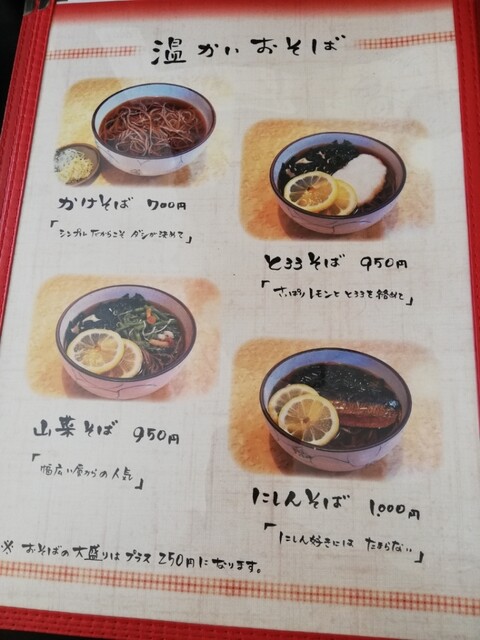 温かいおそば
かけそば 700円
「シンプルだからこそ ダシが決めて」
とろろそば 950円
「さっぱりレモンと とろろを絡めて」
山菜そば 950円
「幅広い層からの人気」
にしんそば 1,000円
「にしん好きには たまらない」
※ おそばの大盛りは プラス 250円になります。